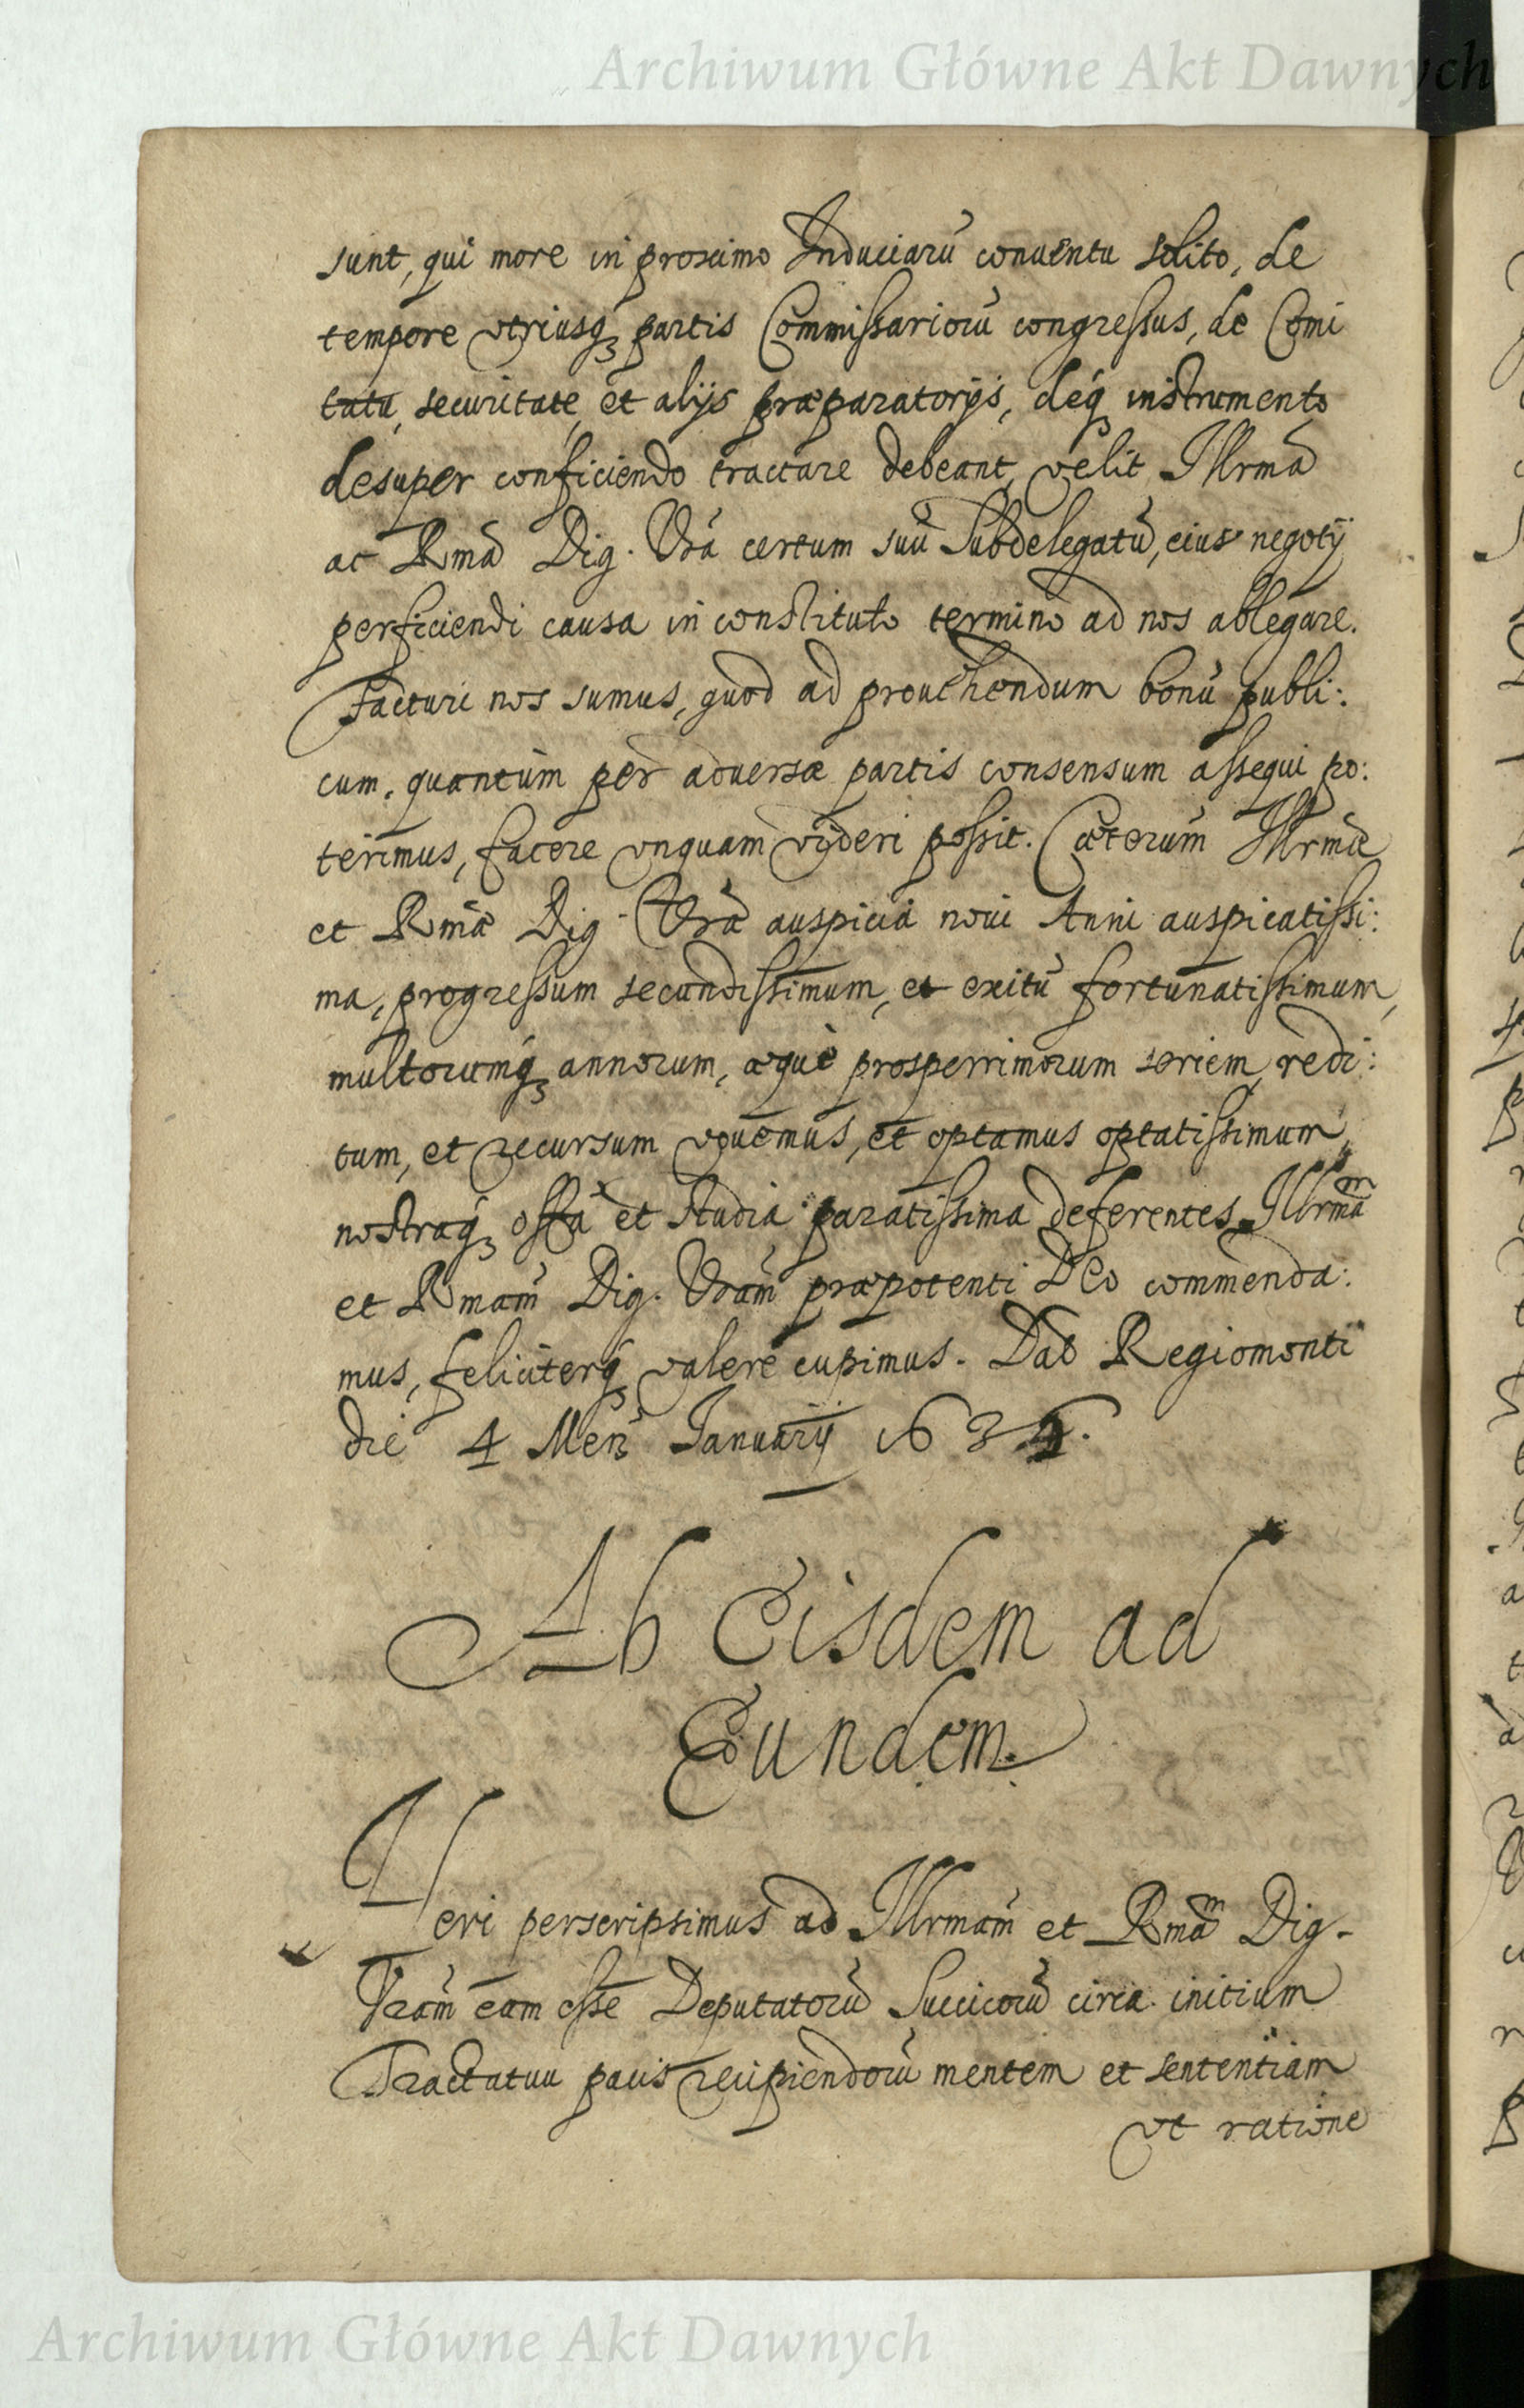 Archiwum Główne Akt Dawnych
sunt, qui more in proximo Induciarũ conuentu solito, de
tempore vtriusq₃ partis Commissariorũ congressus, de Comi
tatu, securitate, et alijs præparatorijs, deq₃ instrumento
desuper conficiendo tractare debeant, velit Illrmã
ac Rmã Dig. Vrã certum suũ Subdelegatũ, eius negotij
perficiendi causa in constituto termino ad nos ablegare.
Facturi nos sumus, quod ad prouehendum bonũ publi:
cum, quantùm per aduersæ partis consensum assequi po:
terimus, facere vnquam videri possit. Cæterùm Illrmæ
et Rmæ Dig. Vræ auspicia noui Anni auspicatissi:
ma, progressum secundissimum, et exitũ fortunatissimum,
multorumq₃ annorum, æquè prosperrimorum seriem, redi:
tum, et recursum vouemus, et optamus optatissimum,
nostraq₃ offã et studia paratissima deferentes, Illrmãm
et Rmam̃ Dig. Vram̃ præpotenti DEo commenda:
mus, feliciterq₃ valere cupimus. Dat Regiomonti
die 4 Men̄ Januarij 1634.
Ab Eisdem ad
Eundem.
Veri perscripsimus ad Illrmam̃ et Rmãm Dig.
Vram̃ eam esse Deputatorũ Suecicorũ circa initium
Tractatuu pacis recipiendorũ mentem et sententiam
vt ratione
Archiwum Główne Akt Dawnych